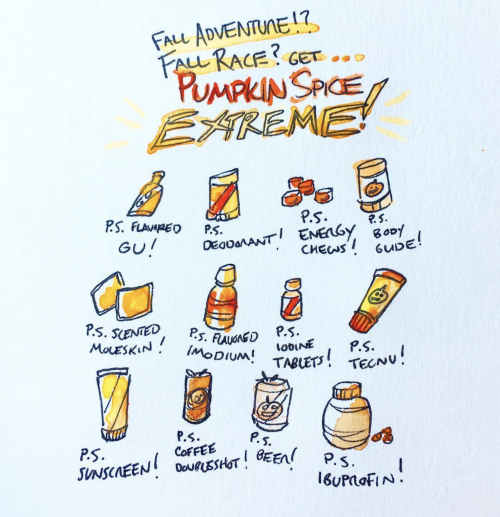 FALL ADVENTURE!?
FALL RACE? GET ...
PUMPKIN SPICE
EXTREME!
P.S. FLAVORED
GU!
P.S.
DEODORANT!
P.S.
ENERGY
CHEWS!
P.S.
BODY
GLIDE!
P.S. SCENTED
MOLESKIN!
P.S. FLAVORED
IMODIUM!
P.S.
IODINE
TABLETS!
P.S.
TECNU!
P.S.
SUNSCREEN!
P.S.
COFFEE
DOUBLESHOT!
P.S.
BEER!
P.S.
IBUPROFIN!